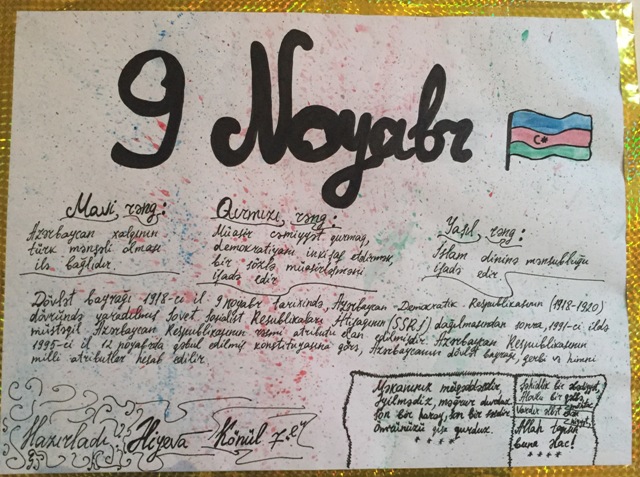 9 Noyabr
Mavi rəng:
Azərbaycan xalqının
türk mənşəli olması
ilə bağlıdır.
Qırmızı rəng:
Müasir cəmiyyət qurmaq,
demokratiyanı inkişaf etdirmək,
bir sözlə müasirləşməni
ifadə edir
Yaşıl rəng:
İslam dininə mənsubluğu
ifadə edir.
Dövlət bayrağı 1918-ci il 9 Noyabr tarixində, Azərbaycan-Demokratik-Respublikasının (1918-1920)
dövründə yaradılmış Sovet Sosialist Respublikaları İttifaqının (SSRİ) dağılmasından sonra, 1991-ci ildə
müstəqil Azərbaycan Respublikasının rəsmi atributu elan edilmişdir. Azərbaycan Respublikasının
1995-ci il 12 noyabrda qəbul edilmiş konstitusiyasına görə, Azərbaycanın dövlət bayrağı, gerbi və himni
milli atributlar hesab edilir.
Məkanınız müqəddəsdir,
Əyilmədiz, məğrur durduz.
Son bir haray, son bir
Ömrünüzü qurduz.
****
Şəhidlik bir
bir
Vardır əlbət
Allah
buna əlac!
****
Hazırladı: Könül 7